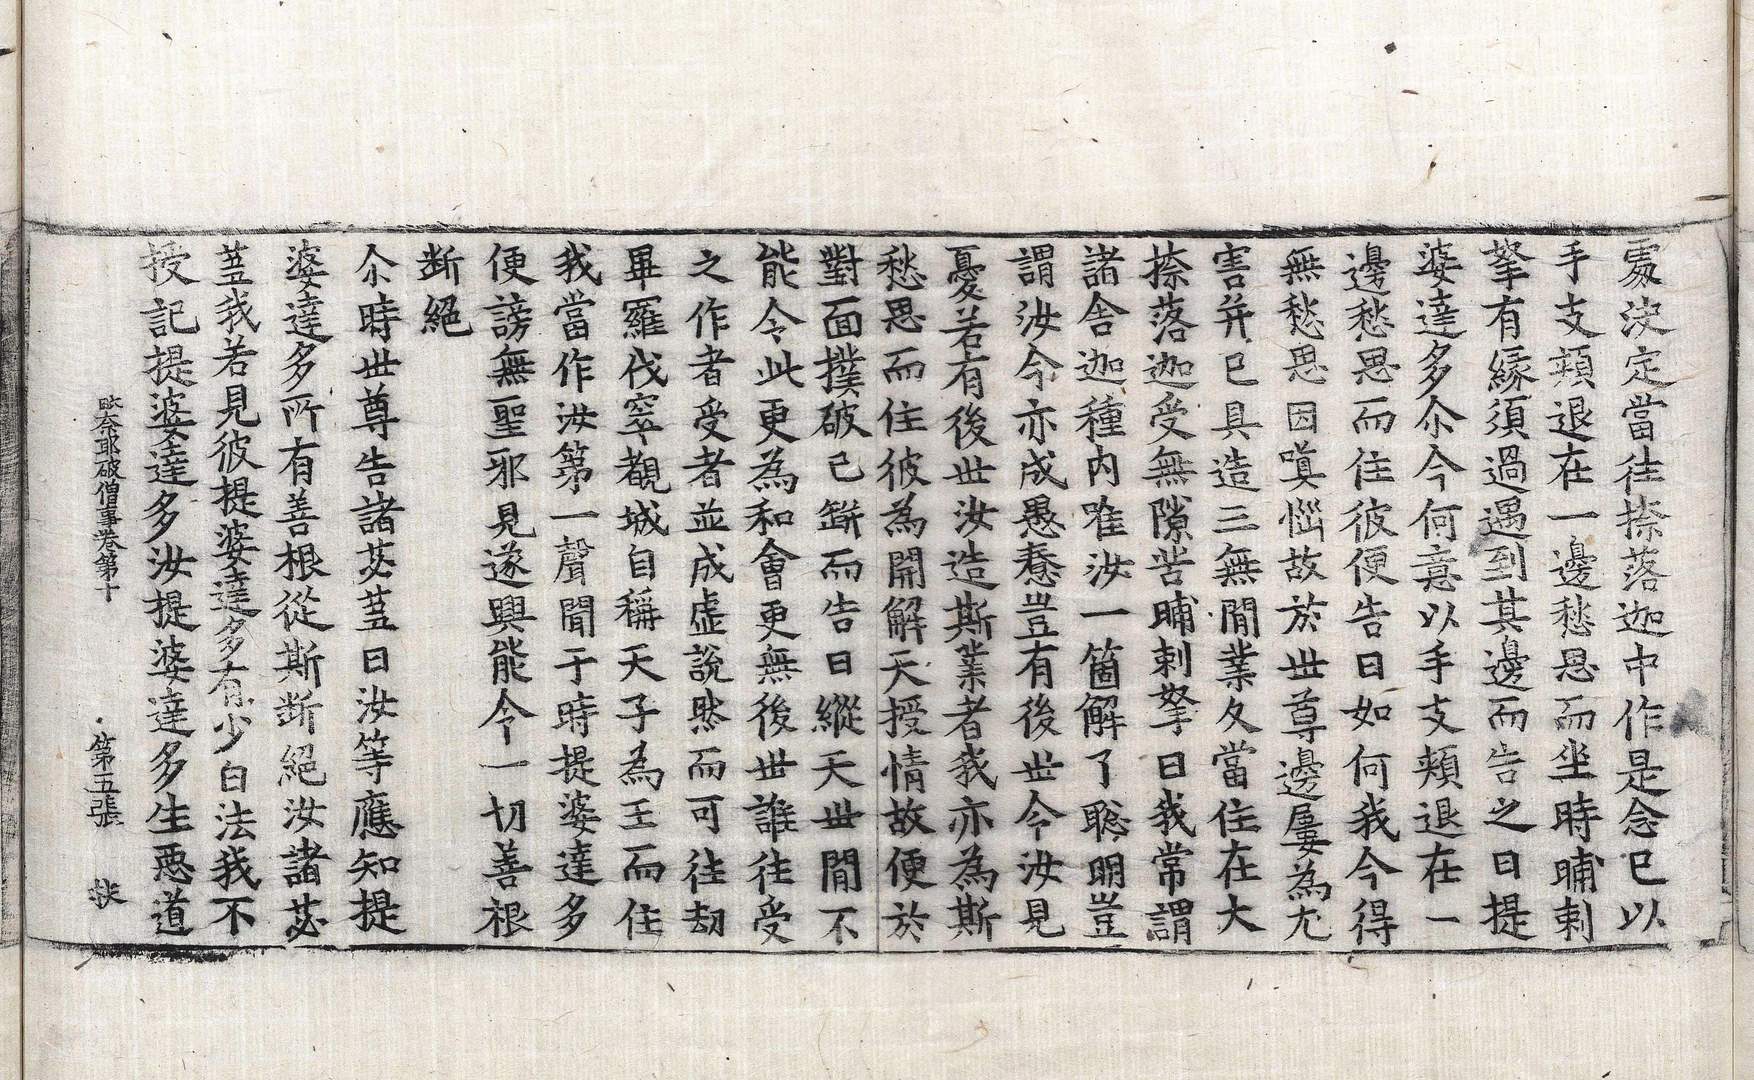 處決定當往捺落迦中作是念已以
手支頰退在一邊愁思而坐時晡刺
拏有緣須過遇到其邊而告之曰提
婆達多尒今何意以手支頰退在一
邊愁思而住彼便告曰如何我今得
無愁思因嗔惱故於世尊邊屢為尤
害并已具造三無間業久當住在大
捺落迦受無隙苦晡剌拏曰我常謂
諸舍迦種內唯汝一箇解了聡明豈
謂汝今亦成愚惷豈有後世今汝見
憂若有後世汝造斯業者我亦為斯
愁思而住彼為開解天授情故便於
對面撲破己缾而告曰縱天世間不
能令此更為和會更無後世誰往受
之作者受者並成虛說然而可往劫
畢羅伐窣覩城自稱天子為王而住
我當作汝第一聲聞于時提婆達多
便謗無聖邪見遂興能令一切善根
断絕
尒時世尊告諸苾䒭曰汝等應知提
婆達多所有善根從斯断絕汝諸苾
䒭我若見彼提婆達多有少白法我不
授記提婆達多汝提婆達多生惡道
毗奈耶破僧事卷第十 第五張